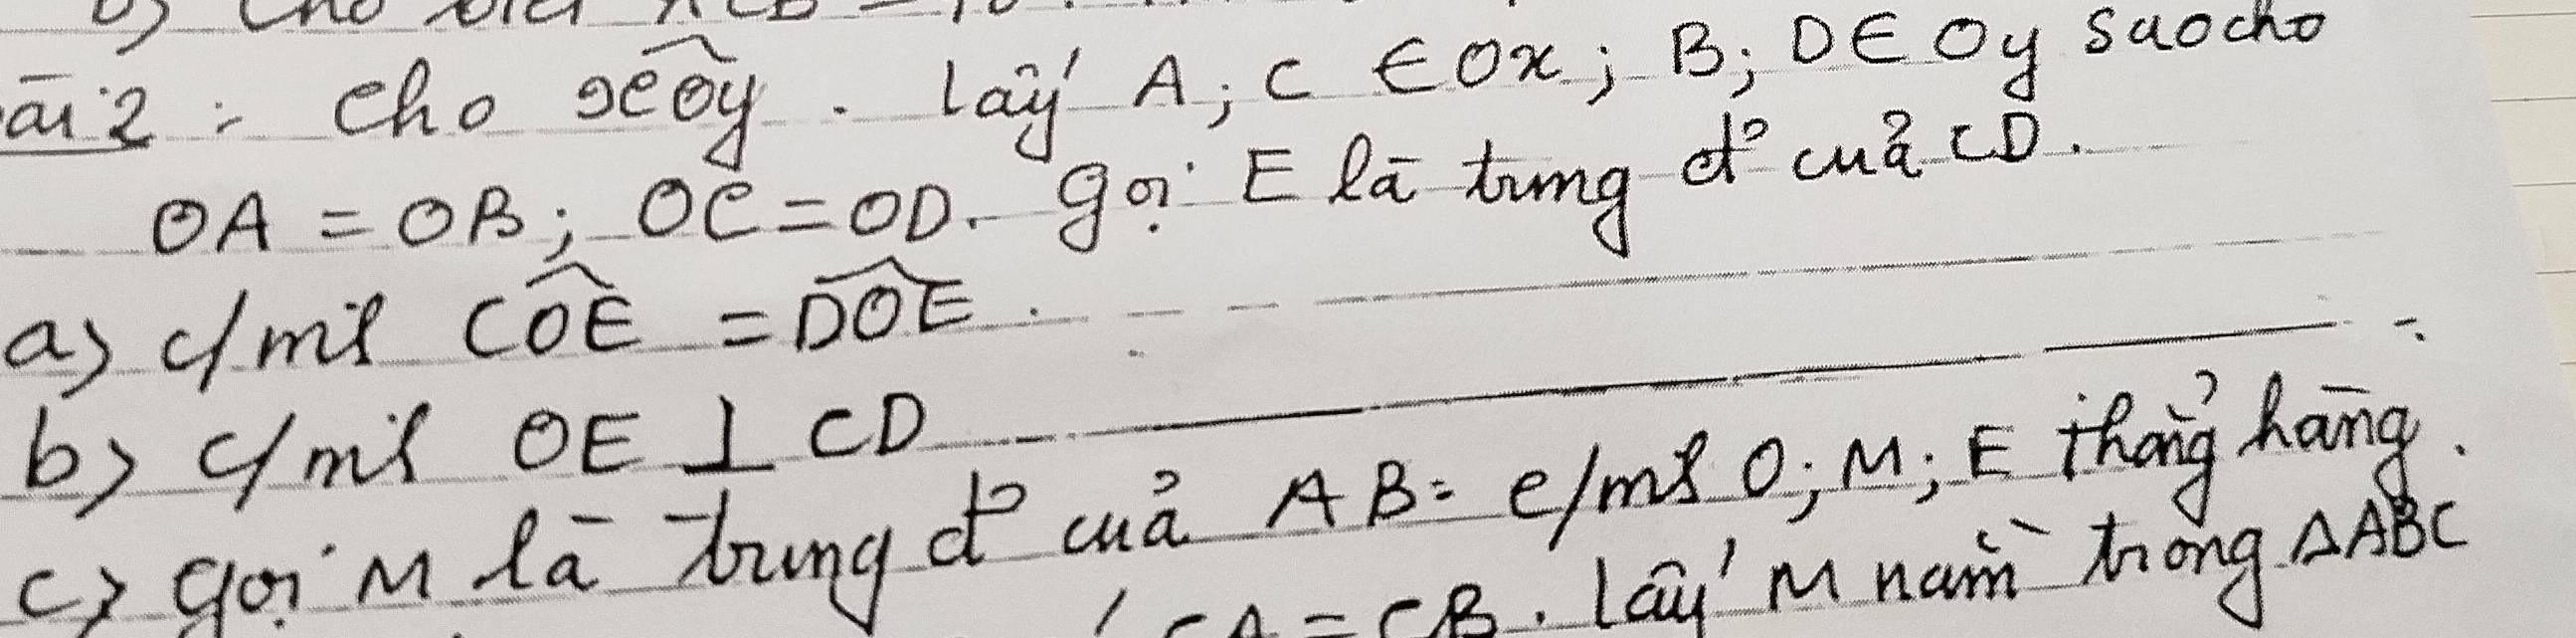 b) Cho biết ACB =
ài 2: Cho xOy. Lấy A; C ∈ Ox; B; D ∈ Oy sao cho
OA = OB; OC = OD. gọi E là trung đ² của CD.
a) c/m² COE = DOE.
b) c/m² OE ⊥ CD
c) gọi M là trung đ² của AB: c/m² O; M; E thẳng hàng.
CA = CB. Lấy M nằm trong ΔABC